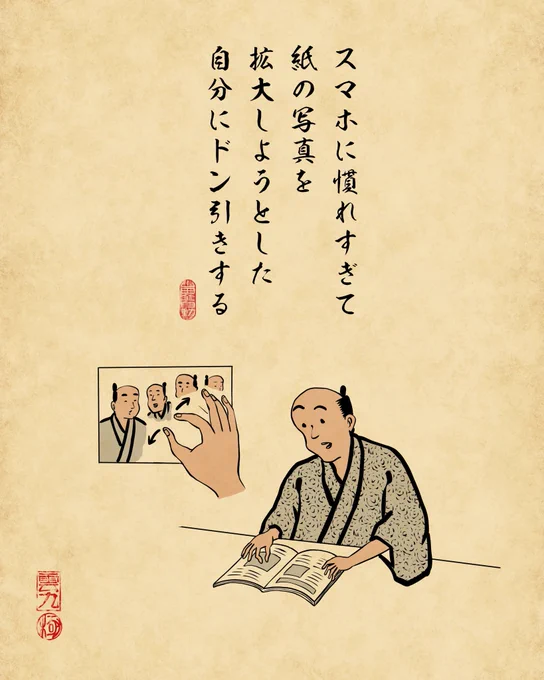 スマホに慣れすぎて
紙の写真を
拡大しようとした
自分にドン引きする